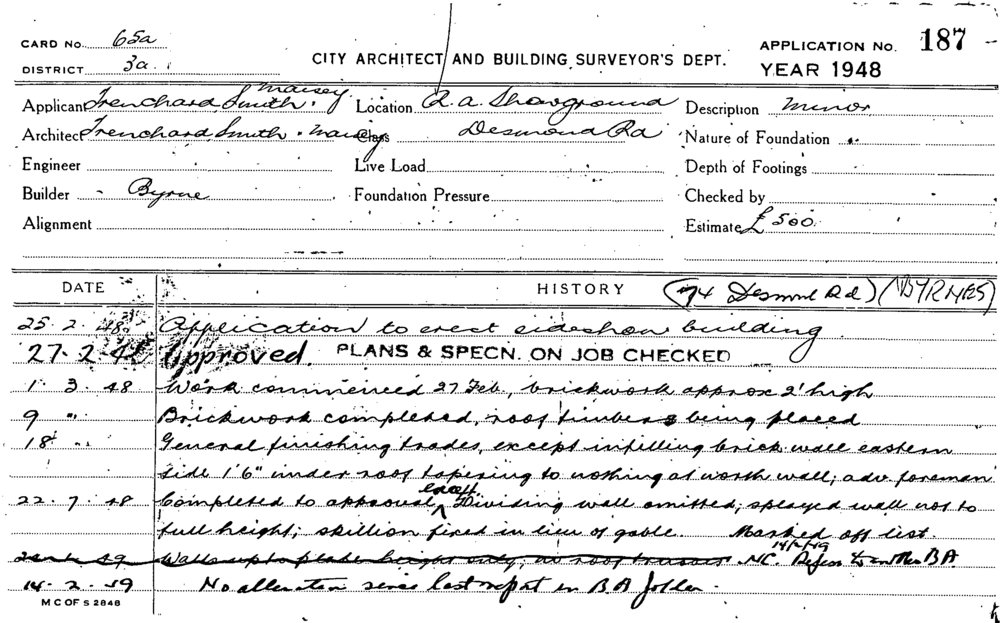 CARD No. 65a
DISTRICT 3a.
CITY ARCHITECT AND BUILDING SURVEYOR'S DEPT.
APPLICATION No. 187
YEAR 1948
Applicant Trenchard, Smith. Maisey Location R.A. Showground Description Minor
Architect Trenchard, Smith. Maisey Class Desmond Rd Nature of Foundation
Engineer Live Load Depth of Footings
Builder Byrne Foundation Pressure Checked by
Alignment Estimate £500.
DATE HISTORY (74 Desmond Rd) (BYRNES)
25.2.48 Application to erect sideshow building
27.2.48 Approved. PLANS & SPECN. ON JOB CHECKED
1 3. 48 Work commenced 27 Feb, brickwork approx 2' high
9 " Brickwork completed, roof timbers being placed
18 " General finishing trades, except infilling brick wall eastern
side 1'6" under roof tapering to nothing at north wall; adv. foreman
22. 7. 48 Completed to approval except. Dividing wall omitted; splayed wall not to
full height; skillion fixed in lieu of gable. Marked off list.
Walls up to plate height only, no roof trusses NC. 14/2/49 Refers to another BA
14.2.49 No alteration since last report in BA folder.
M C OF S 2848